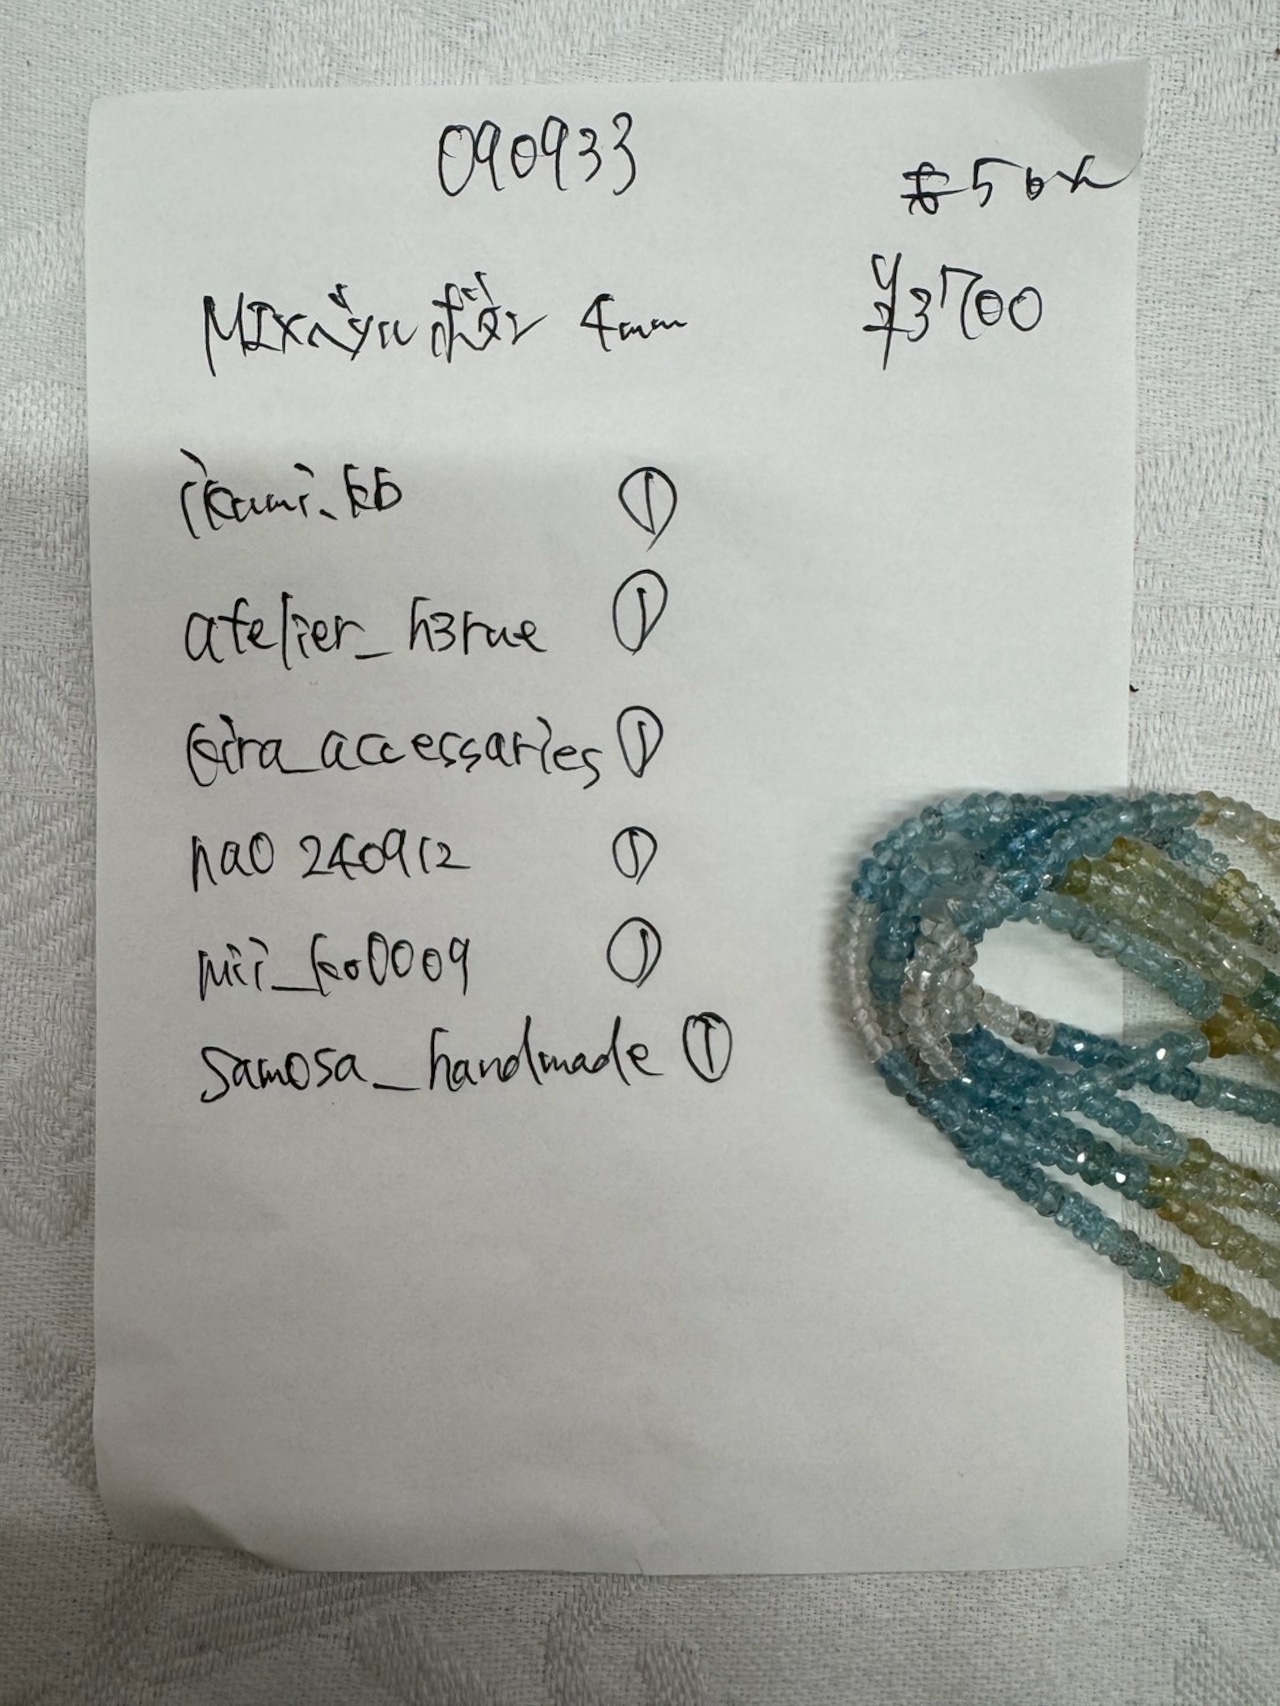 090933
MIXベリルボタン 4mm ¥3700
ikumi_kb ①
atelier_h3rue ①
kira_accessaries ①
nao 240912 ①
mii_ko0009 ①
samosa_handmade ①